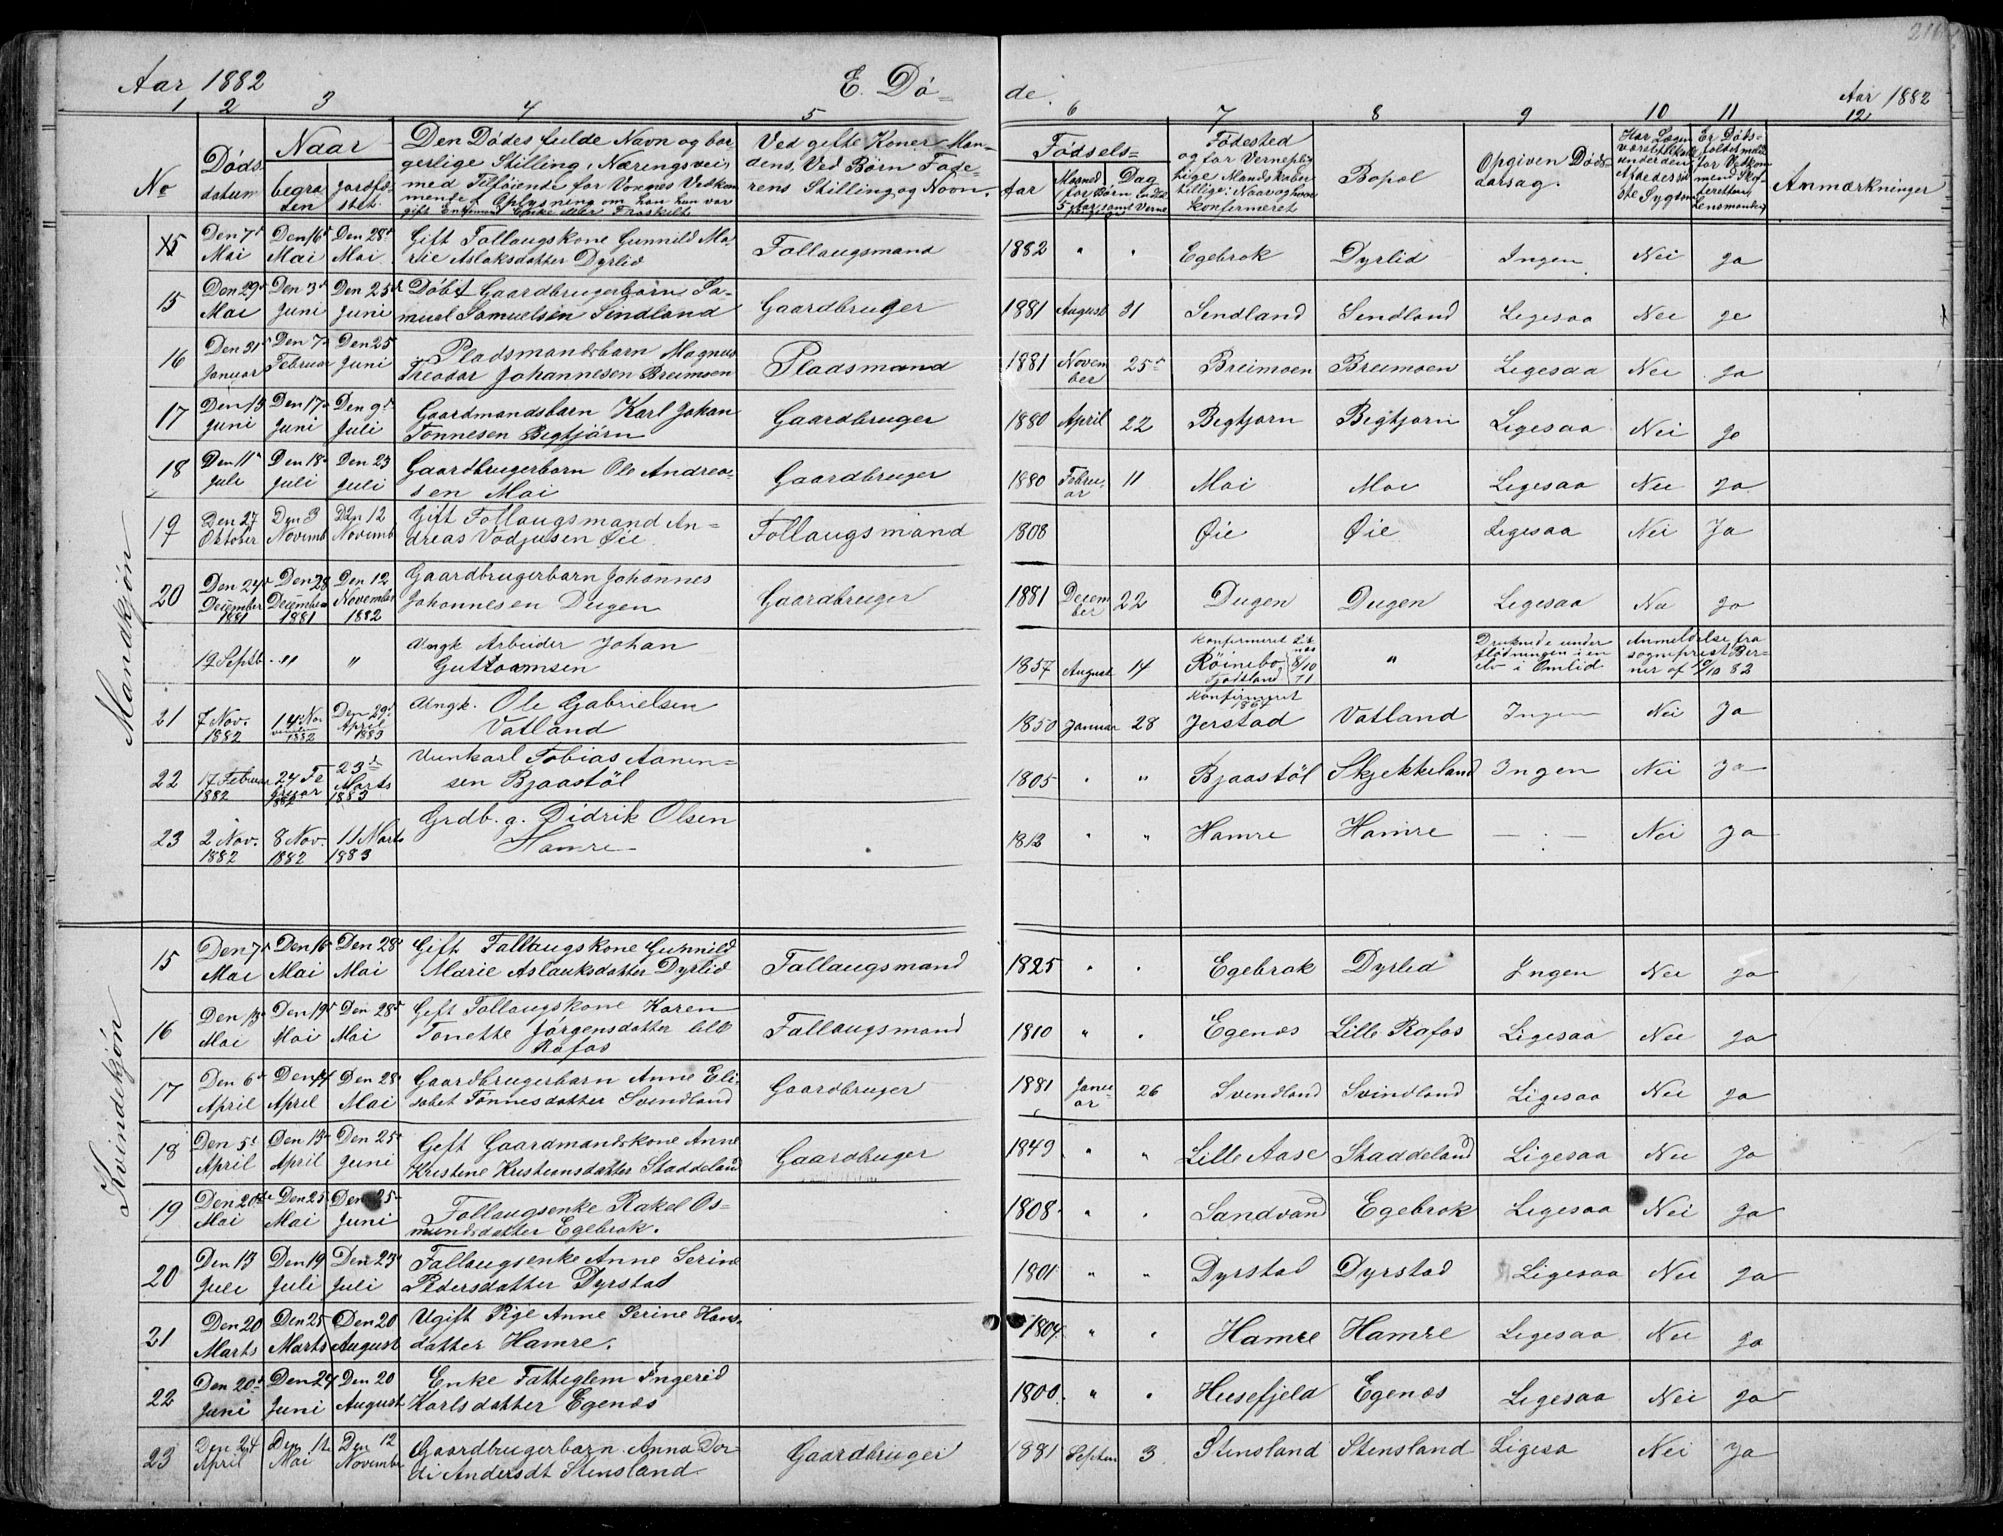 Aar 1882
E. Dö-
de.
Aar 1882
1 2 3 4 5 6 7 8 9 10 11 12
No
Döds datum
Naar
begra den
jordfæ stet.
Den Dödes fulde Navn og bor
gerlige Stilling, Næringsvei,
med Tilföiende for Voxnes Vedkom
mende Oplysning om han hun var
gift Enkemand Enke eller Fraskilt
Ved gifte Koner Man-
dens, Ved Börn Fade-
rens Stilling og Navn.
Födsels=
Aar
Maaned for Börn
Dag
Födested
og for Verneplig
tige Mandskaber
tillige: Naar og hvor
konfirmeret
Bopæl
Opgiven Döds
aarsag.
Har Lægen
Er Döds-
Anmærkninger
Mandkjön
15 Den 7d Mai Den 16d Mai Den 28d Mai Gift Follaugskone Gunnild Ma
rie Aslaksdatter Dyrlid Follaugsmand 1882 " " Egebrok Dyrlid Ingen Nei Ja
15 Den 29d Mai Den 3d Juni Den 25d Juni Döbt Gaardbrugerbarn Sa-
muel Samuelsen Sindland Gaardbruger 1881 August 31 Sindland Sindland Ligesaa Nei Ja
16 Den 31d Januar Den 7d Februar Den 25 Juni Pladsmandsbarn Magnus
Teodor Johannesen Breimoen Pladsmand 1881 Novem ber 25d Breimoen Breimoen Ligesaa Nei Ja
17 Den 13 Juni Den 17d Juni Den 9d Juli Gaardmandsbarn Karl Johan
Tönnesen Begtjörn Gaardbruger 1880 April 22 Begtjorn Begtjorn Ligesaa Nei Ja
18 Den 11d Juli Den 18d Juli Den 23 Juli Gaardbrugerbarn Ole Andrea-
sen Moi Gaardbruger 1880 Febru- ar 11 Moi Moi Ligesaa Nei Ja
19 Den 27 Oktober Den 3 Novemb Den 12 Novemb Gift Follaugsmand An-
dreas Vodjusen Øie Follaugsmand 1808 Øie Øie Ligesaa Nei Ja
20 Den 24d December 1881 Den 28 December 1881 Den 12 November 1882 Gaardbrugerbarn Johannes
Johannesen Dugen Gaardbruger 1881 Decem ber 22 Dugen Dugen Ligesaa Nei Ja
19 Septb. " " Ungk Arbeider Johan
Guttormsen 1857 August 14 Konfirmeret Röinebo, Fjotland 8/10 71 " Druknede under
flödningen i en
elv i Omlid Anmeldelse fra
sogneprest Ber-
ner af 10/10 82
21 7 Nov. 1882 14 No vember 1882 Den 29d April 1883 Ungk. Ole Gabrielsen
Vatland 1850 Januar 28 Konfirmeret 1867 Jerstad Vatland Ingen Nei Ja
22 17 Februar 1882 24 Fe bruar 1882 23d Marts 1883 Tobias Aanen=
sen Bjaastöl 1805 " " Bjaastöl Skjekkeland Ingen Nei Ja
23 2 Nov. 1882 8 Nov. 1882 11 Marts 1883 Grdb. g. Didrik Olsen
Hamre 1812 " " Hamre Hamre — . — Nei Ja
Kvindekjön
15 Den 7d Mai Den 16d Mai Den 28d Mai Gift Fallaugskone Gunnild
Marie Aslauksdatter Dyrlid Fallaugsmand 1825 " " Egebrok Dyrlid Ingen Nei Ja
16 Den 13d Mai Den 19d Mai Den 28d Mai Gift Follaugskone Karen
Tonette Jörgensdatter lille
Rafos Fallaugsmand 1810 " " Egenæs Lille Rafos Ligesaa Nei Ja
17 Den 6d April Den 14 April Den 28d Mai Gaardbrugerbarn Anne Eli-
sabet Tönnesdatter Svindland Gaardbruger 1881 Janu- ar 26 Svendland Svindland Ligesaa Nei Ja
18 Den 5d April Den 13d April Den 25d Juni Gift Gaardmandskone Anne
Kristine Kristiansdatter Staddeland Gaardbuger 1849 " " Lille Aase Staddeland Ligesaa Nei Ja
19 Den 20de Mai Den 25 Mai Den 25 Juni Follaugsenke Rakel Os=
mundsdatter Egebrok. 1808 " " Sandvand Egebrok Ligesaa Nei Ja
20 Den 13 Juli Den 19 Juli Den 23d Juli Fallaugsenke Anne Serine
Pedersdatter Dyrstad 1801 " " Dyrstad Dyrstad Ligesaa Nei Ja
21 Den 20 Marts Den 25 Marts Den 20 August Ugift Pige Anne Serine Hans-
datter Hamre. 1804 " " Hamre Hamre Ligesaa Nei Ja
22 Den 20d Juni Den 24 Juni Den 20 August Enke Fattiglem Ingerid
Karlsdatter Egenæs 1800 " " Husefjeld Egenæs Ligesaa Nei Ja
23 Den 24 April Den 12 Mai Den 12 Novembe Gaardbrugerbarn Anna Dor
di Andersdt Stensland Gaardbruger 1881 Septem 3 Stensland Stensland Ligesa Nei Ja